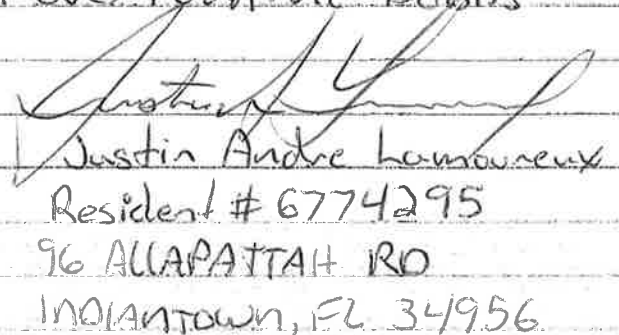 Justin Andre Lamoureux
Resident # 6774295
96 ALLAPATTAH RD
INDIANTOWN, FL 34956